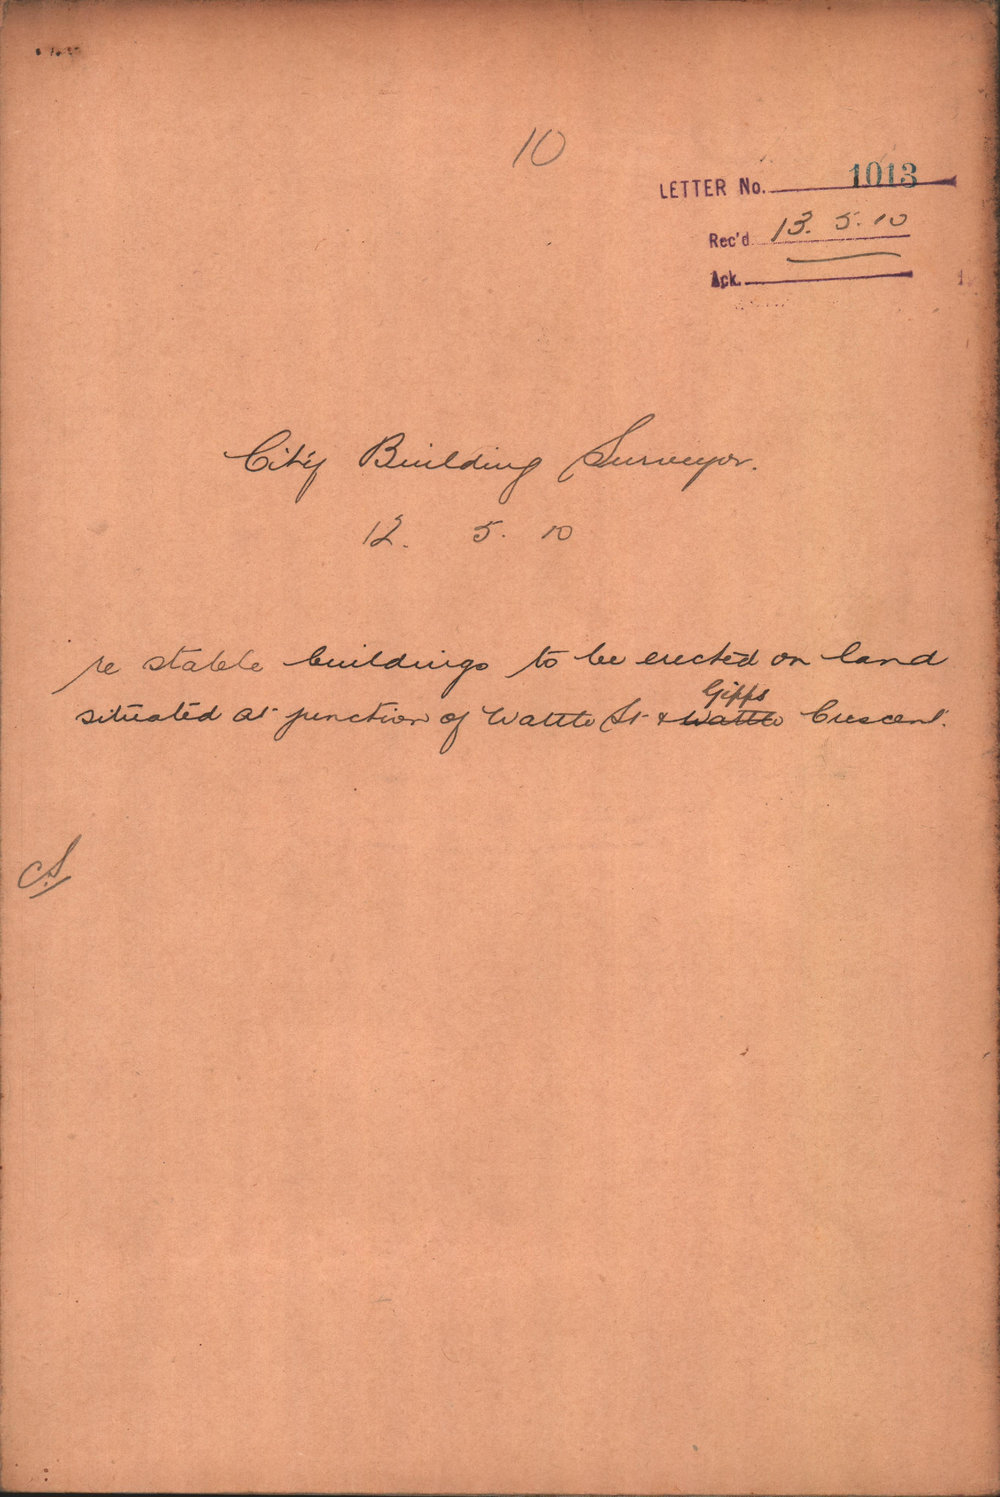 10
LETTER No. 1013
Rec'd 13.5.10
Ack.
City Building Surveyor.
12. 5. 10
re stable buildings to be erected on land
Gipps
situated at junction of Wattle St & Wattle Crescent.